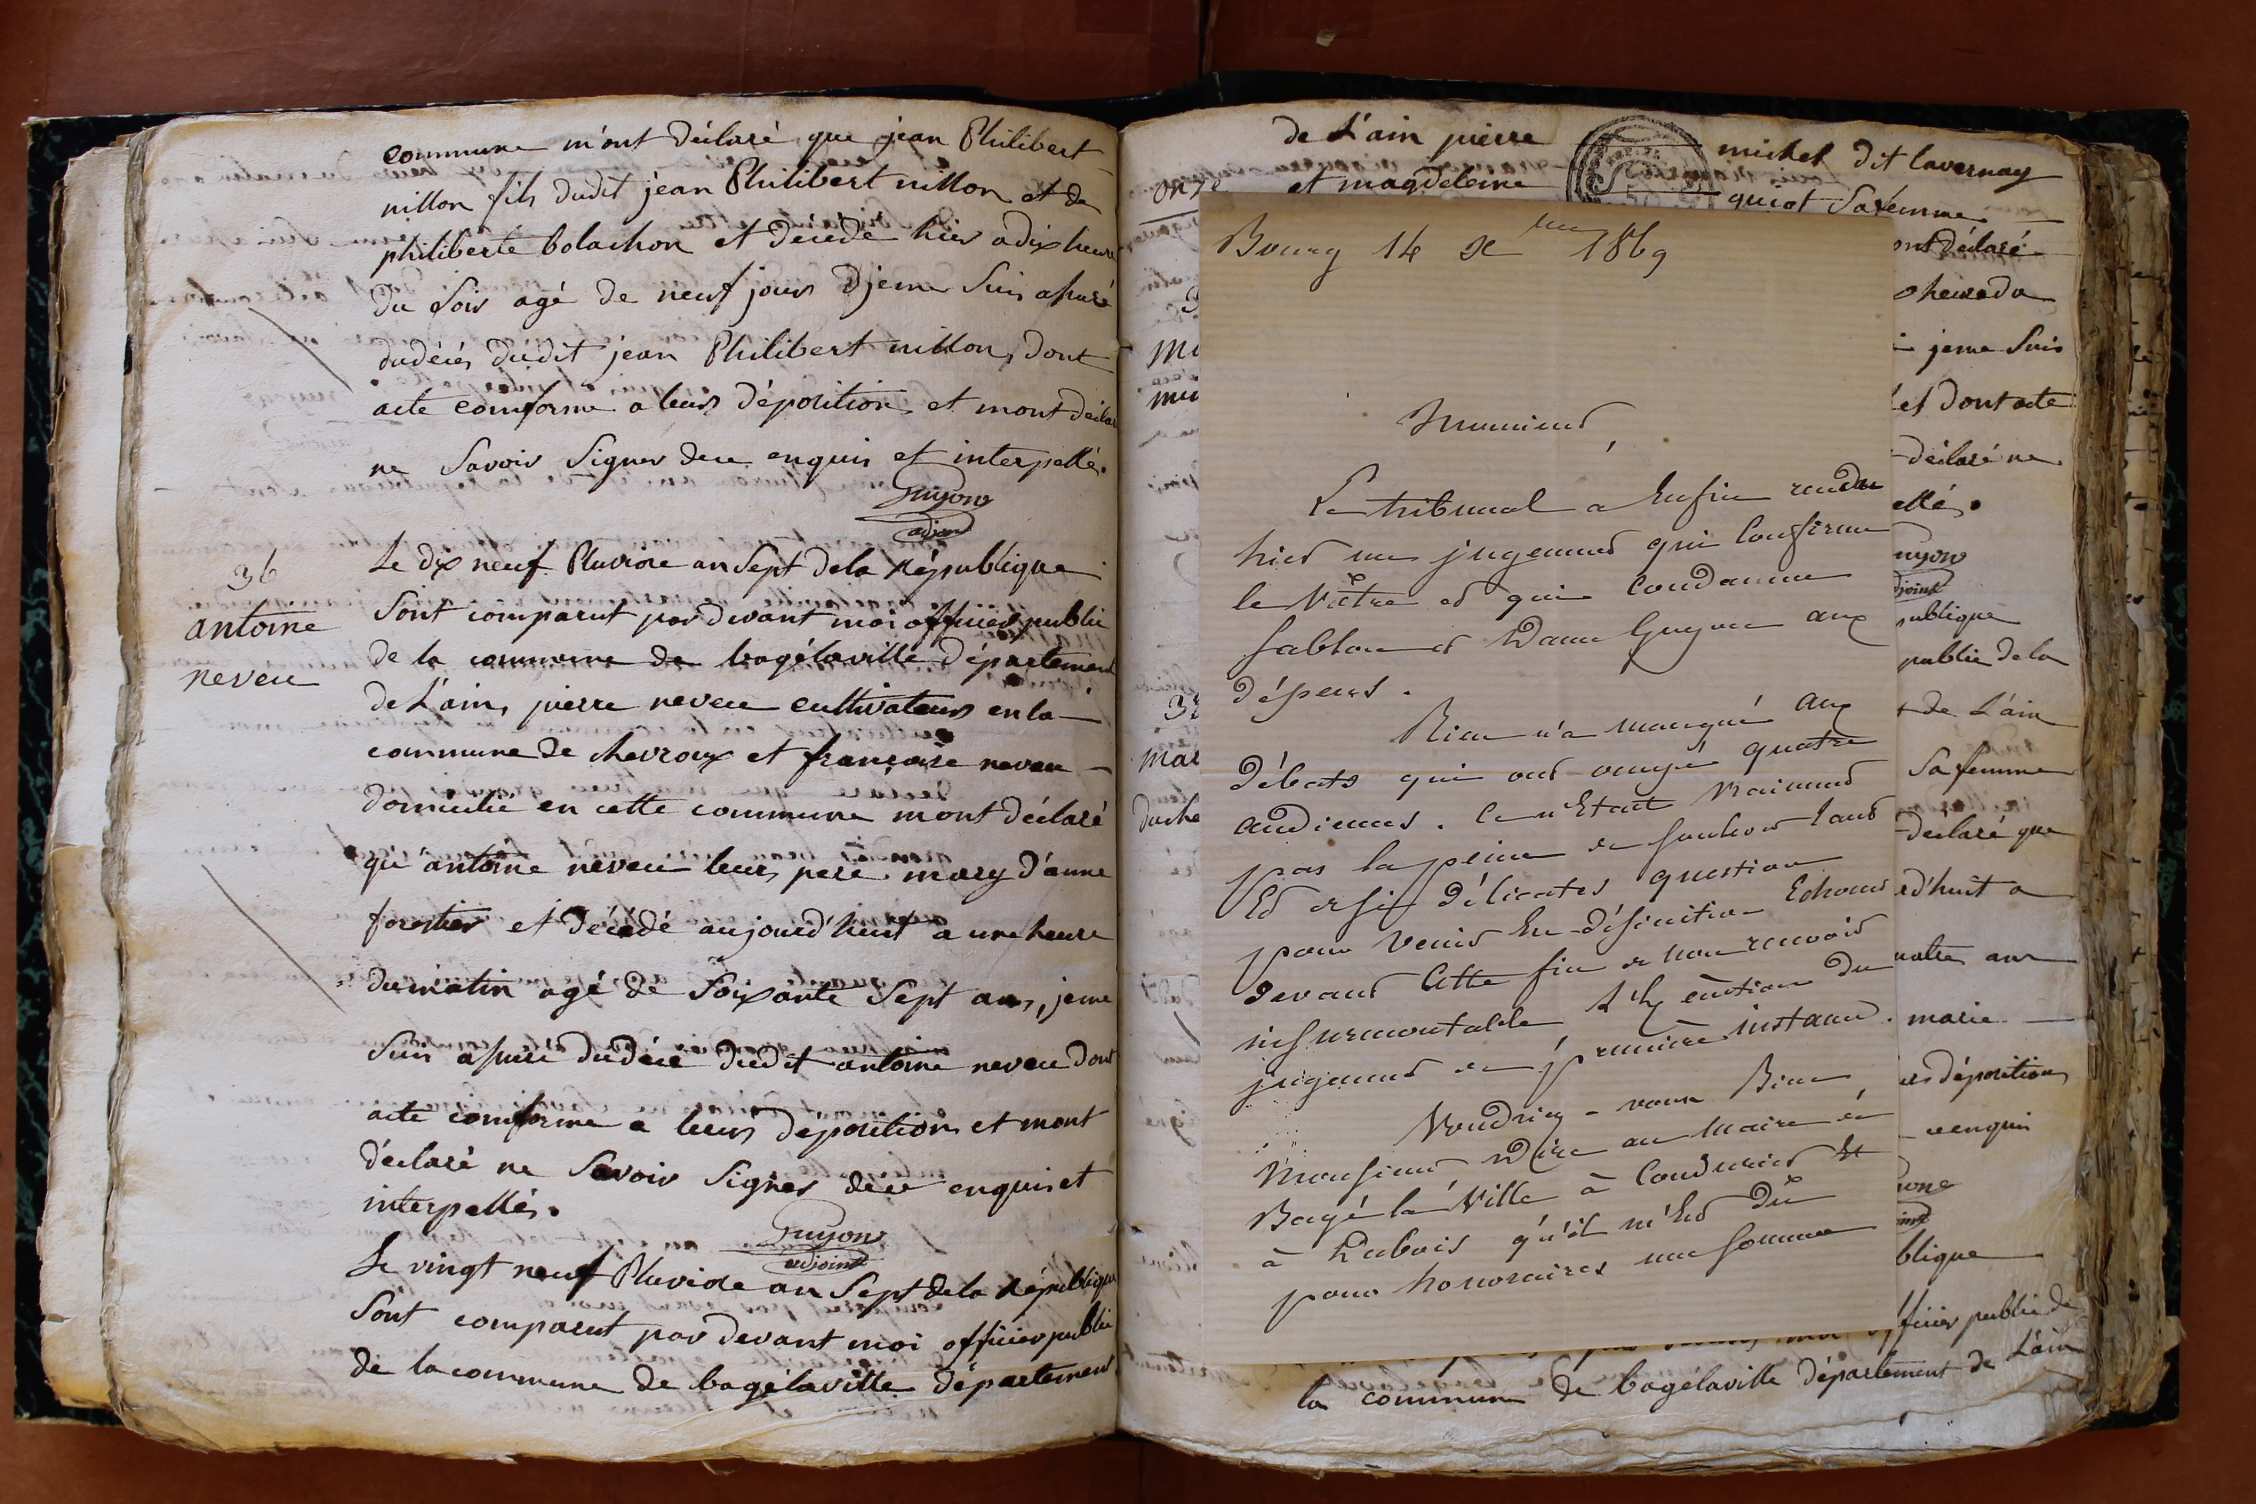 commune m'ont déclaré que jean Philibert
nillon fils dudit jean Philibert nillon et de
philiberte bolachon et décédé hier a dix heure
du soir agé de neuf jours D jeme suis assuré
dudécés dudit jean Philibert nillon, dont
acte comforme a leurs déposition et mont déclar
ne savoir signer dece enquis et interpellé.
Guyon
adjoint
36
antoine
neveu
Le dix neuf Pluviose an sept dela République
sont comparut par devant moi officier public
de la commune de bagélaville département
de L'ain, pierre neveu cultivateur en la
commune de chevroux et françoise neveu
domicilié en cette commune mont déclaré
qu'antoine neveu leur pere mary d'anne
forestier et décédé aujourd'huit a une heure
dumatin agé de soixante sept ans, jeme
suis assuré dudécé dudit antoine neveu dont
acte comforme a leurs déposition et mont
déclaré ne savoir signer dece enquis et
interpellé.
Guyon
adjoint
Le vingt neuf Pluviose an sept dela République
sont comparut par devant moi officier public
de la commune de bagélaville département
de L'ain pierre michel dit lavernay
onze
et magdeleine quiot safemme
ont déclaré
heure du
jeme suis
et dont acte
déclaré ne
ellé.
uyon
djoint
publique
public de la
de L'ain
sa femme
declaré que
d'huit a
uatre ans
marie
déposition
enquis
blique
fficier public de
la commune de bagélaville département de L'ain
Bourg 14 Xbre 1869
Monsieur,
Le tribunal a Enfin rendu
hier un jugement qui Confirme
le Vôtre et qui Condamne
Sablon et Dame Guyon aux
dépens.
Rien n'a manqué aux
débats qui ont occupé quatre
audiences. Ce n'Etait Vraiment
pas la peine de soulever tant
Et de si délicates question
pour Venir En définitive Echouer
devant Cette fin de non recevoir
insurmontable tirée du
jugement de première instance.
Voudriez-vous Bien
Monsieur Dire au Maire de
Bagé la Ville à Condurier Et
à Dubois qu'il m'Est Dû
pour honoraires une somme